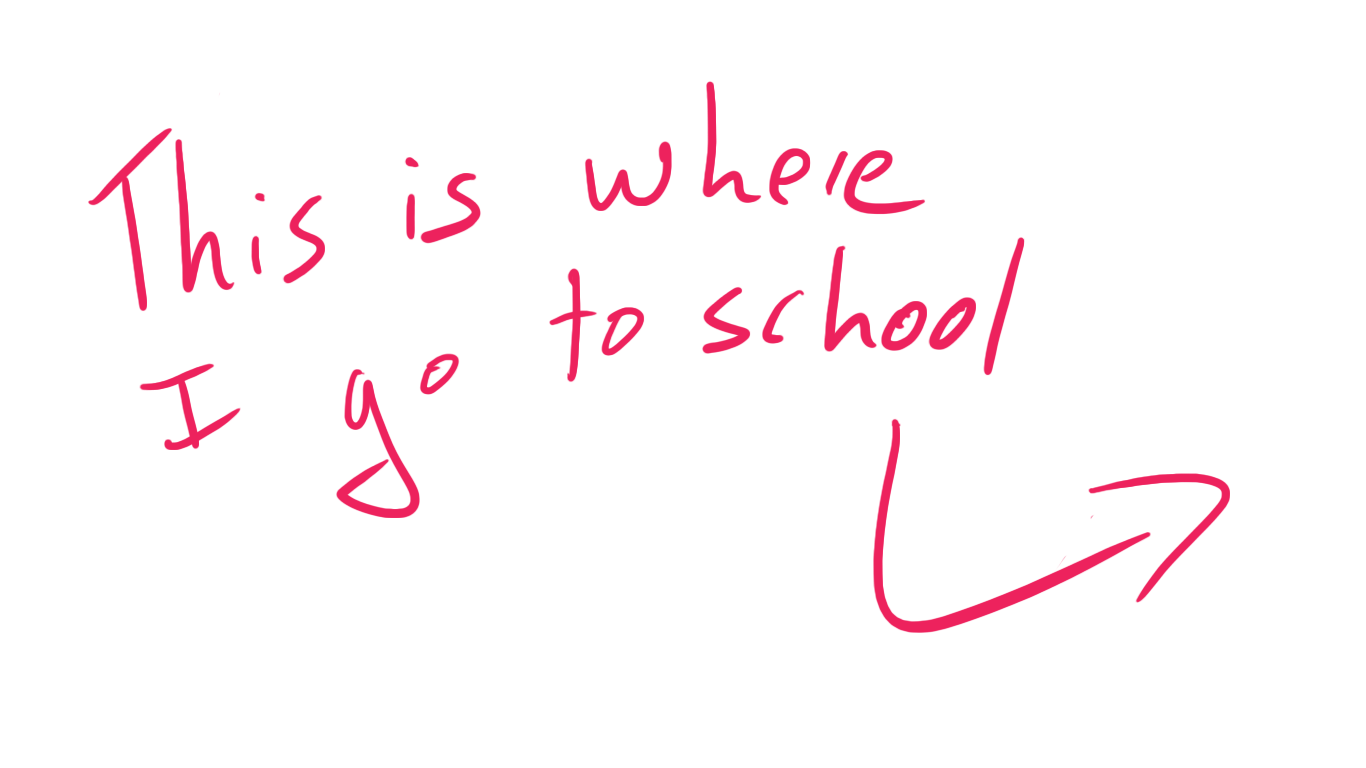 This is where
I go to school